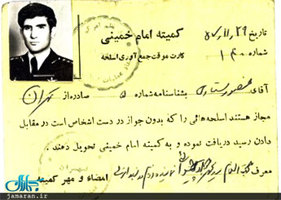 تاریخ ۲۹ / ۱۱ / ۵۷
کمیته امام خمینی
شماره ۱۳۰
کارت موقت جمع آوری اسلحه
آقای منصور ستاری بشناسنامه شماره ۵ صادره از تهران
مجاز هستند اسلحه هائی را که بدون جواز در دست اشخاص است در مقابل
دادن رسید دریافت نموده و به کمیته امام خمینی تحویل دهند.
معرف
امضاء و مهر کمیته
جماران
www.jamaran.ir